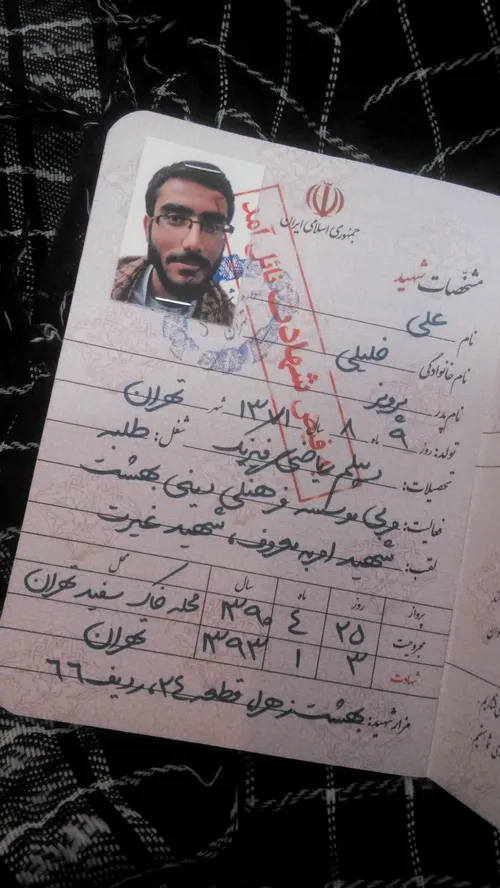 جمهوری اسلامی ایران
مشخصات شهید
به فیض شهادت نائل آمد
نام علی
نام خانوادگی خلیلی
نام پدر پرویز
تولد: روز ۹ ماه ۸ سال ۱۳۷۱ شهر تهران
تحصیلات: دیپلم ریاضی فیزیک شغل: طلبه
فعالیت: مربی موسسه فرهنگی دینی بهشت
لقب: شهید امر به معروف، شهید غیرت
پرواز روز ماه سال محل
مجروحیت ۲۵ ٤ ۱۳۹۰ محله خاک سفید تهران
شهادت ۳ ۱ ۱۳۹۳ تهران
مزار شهید: بهشت زهرا، قطعه ۲٤، ردیف ٦٦